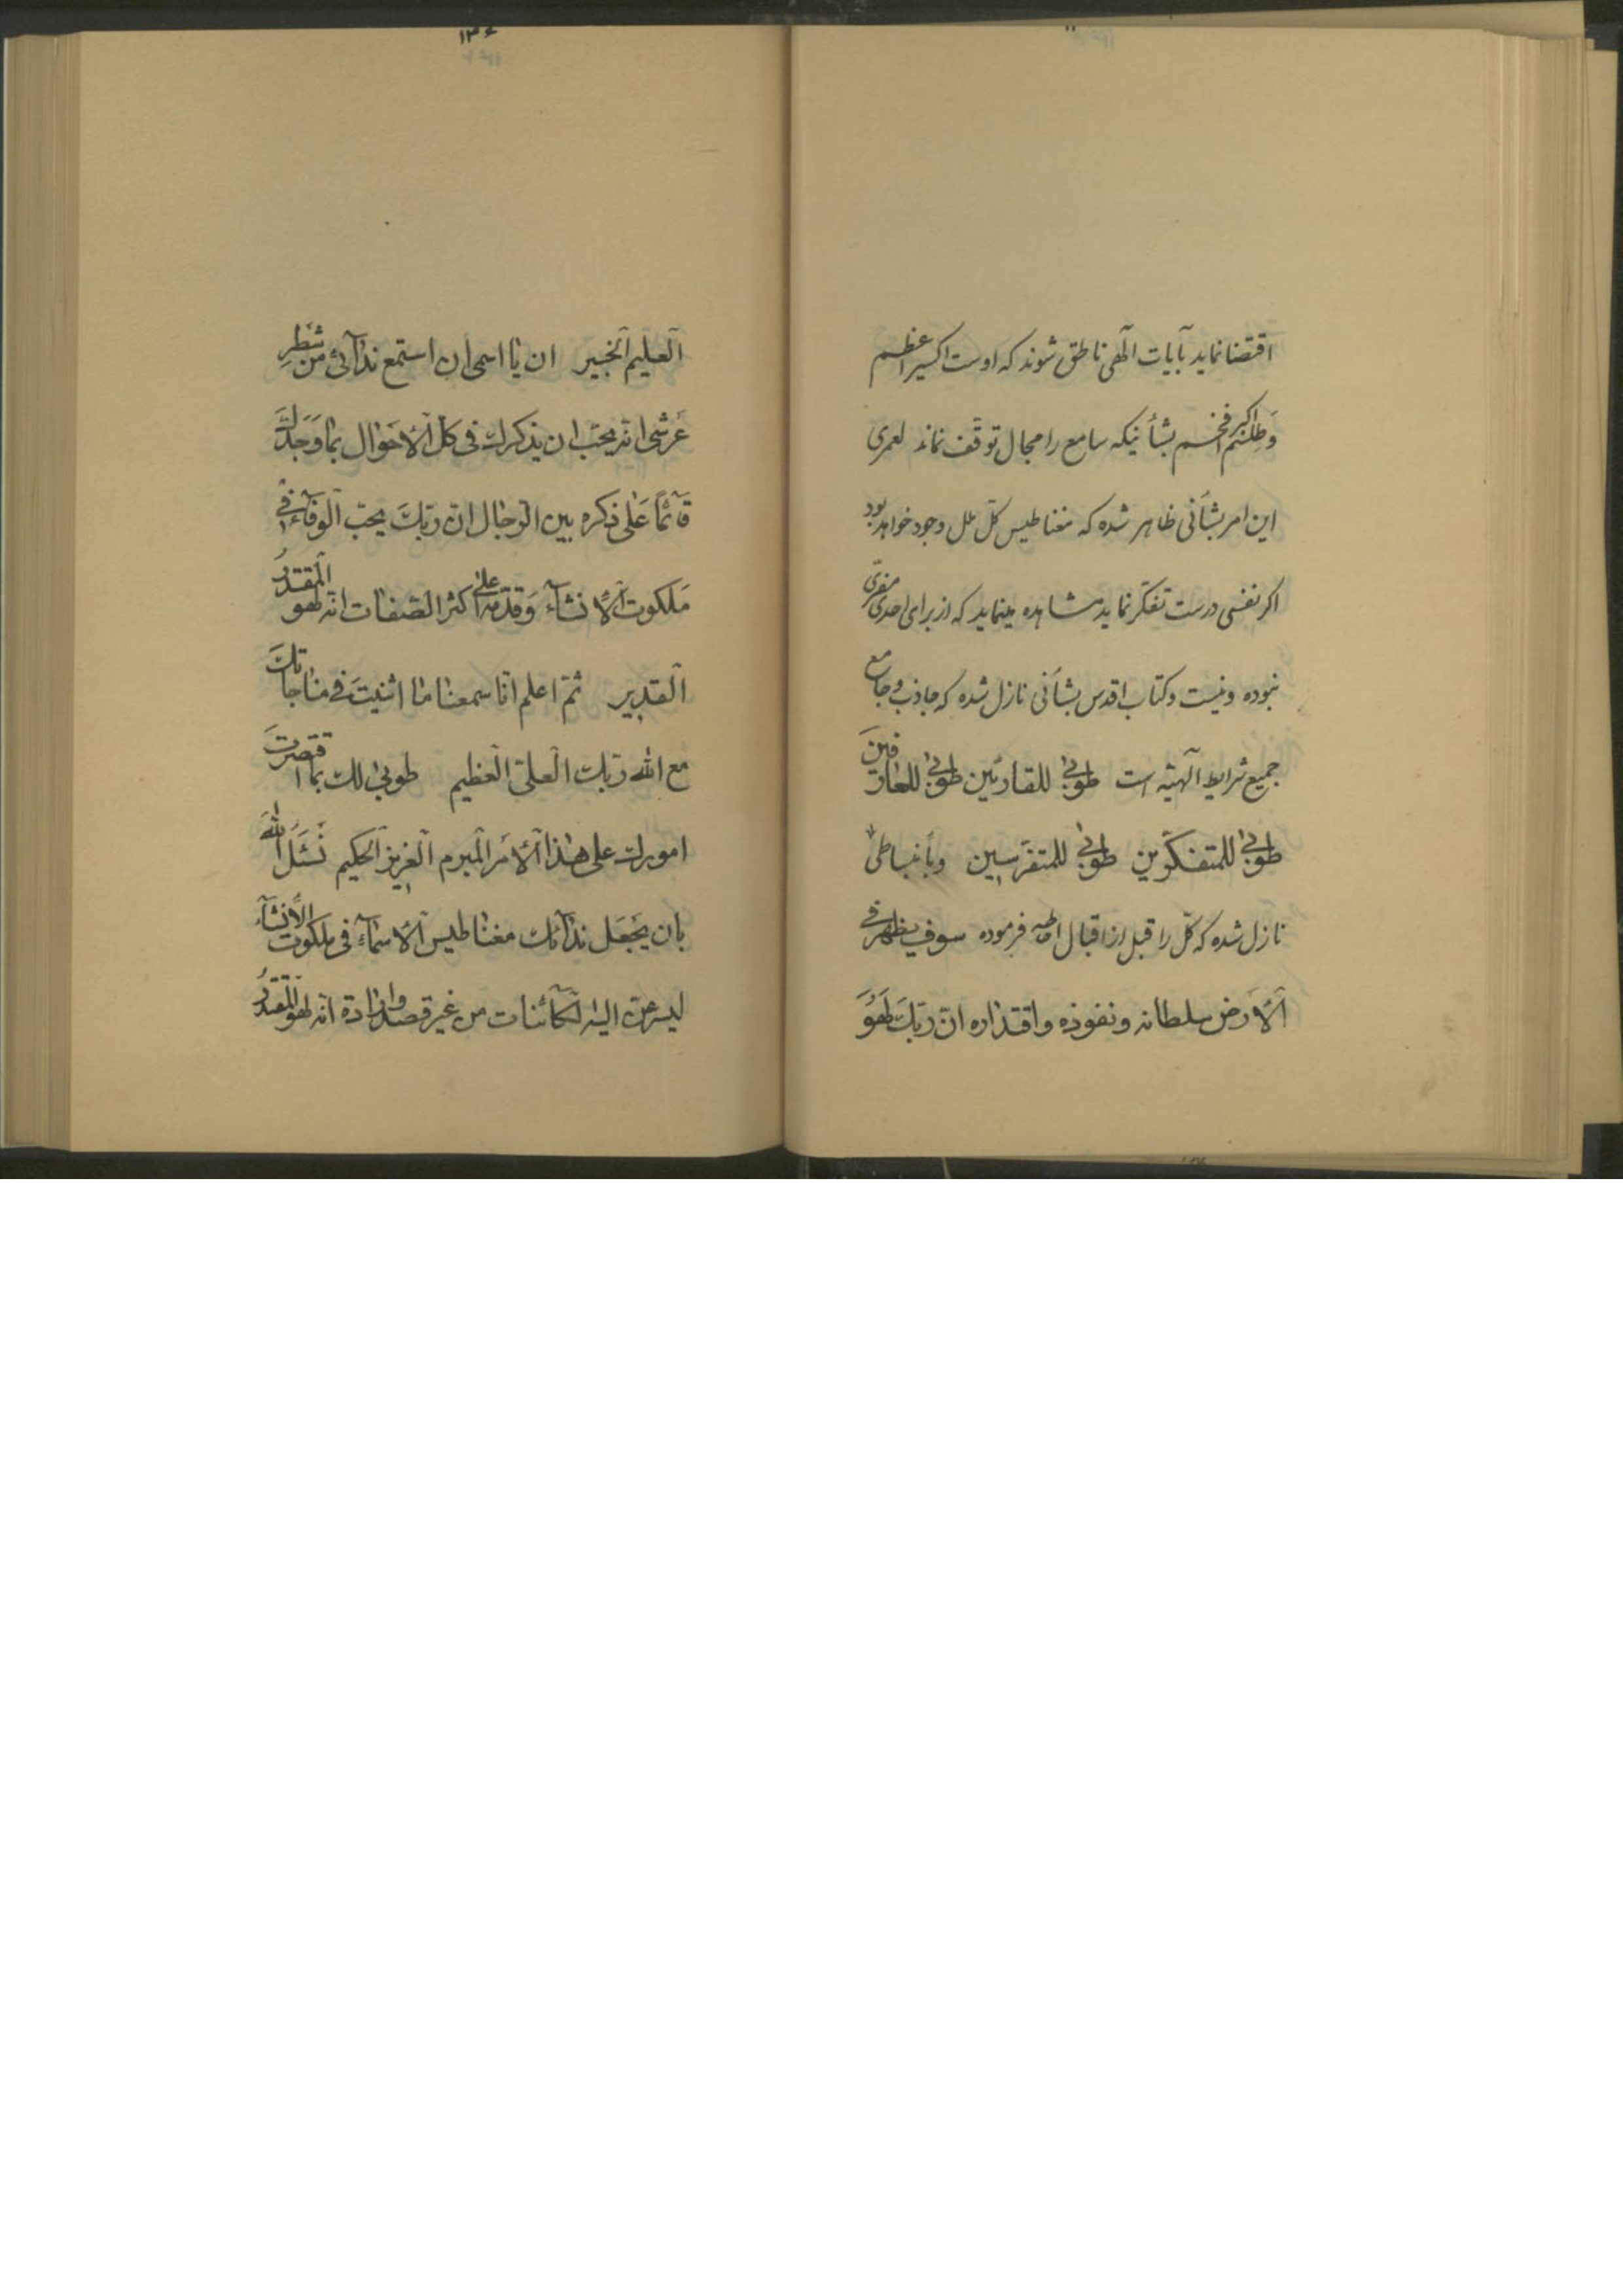 اقتضا نماید بآیات الهی ناطق شوند که اوست اکسیر اعظم
و طلسم اکبر افخم بشأنیکه سامع را مجال توقف نماند لعمری
این امر بشأنی ظاهر شده که مغناطیس کل ملل وجود خواهد بود
اکر نفسی درست تفکر نماید مشاهده مینماید که از برای احدی مفرّی
نبوده و نیست و کتاب اقدس بشأنی نازل شده که جاذب و جامع
جمیع شرایع الهیّه است طوبی للقارئین طوبی للعارفین
طوبی للمتفکرین طوبی للمتفرسین و بانبساطی
نازل شده که کل را قبل از اقبال احاطه فرموده سوف یظهر فی
الأرض سلطانه و نفوذه و اقتداره ان ربک لهو
۱۳۶
العلیم الخبیر ان یا اسمی ان استمع ندائی من شطر
عرشی انه یحب ان یذکرک فی کل الأحوال بما وجدک
قآئماً علی ذکره بین الرجال ان ربک یحب الوفآء فی
ملکوت الأنشآء و قدمه علی اکثر الصفات انه لهو المقتدر
القدیر ثم اعلم انا سمعنا ما اثنیت فی مناجاتک
مع الله ربک العلی العظیم طوبی لک بما اقتصرت
امورک علی هذا الأمر المبرم العزیز الحکیم نسئل الله
بان یجعل ندآئک مغناطیس الأسمآء فی ملکوت الأنشآء
لیسرعن الیه الکآئنات من غیر قصد و ارادة انه لهو المقتدر